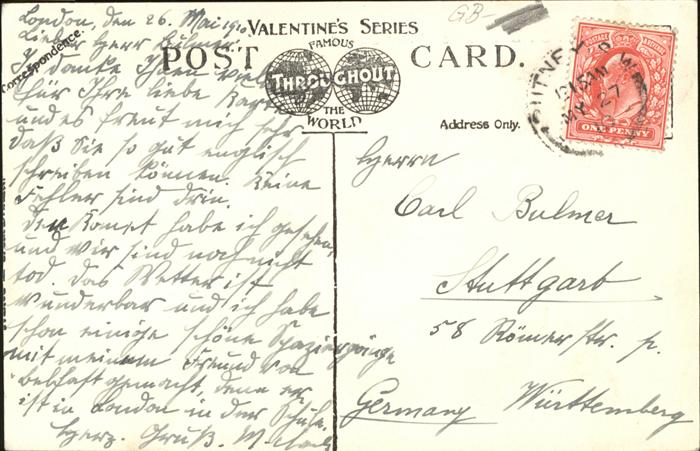 London, den 26. Mai 1910.
Lieber Herr Bulmer.
Ich danke Ihnen viel
für Ihre liebe Karte
und es freut mich sehr
daß Sie so gut englisch
schreiben können. Keine
Fehler sind drin.
Den Komet habe ich gesehen,
und wir sind noch nicht
tod. Das Wetter ist
wunderbar und ich habe
schon einige schöne Spaziergänge
mit meinem Freund von
gemacht, denn er
ist in London in der Schule.
Herz. Gruß.
Correspondence.
VALENTINE'S SERIES
POST CARD.
FAMOUS
THROUGHOUT
THE
WORLD
Address Only.
GB-
POSTAGE
ONE PENNY
PUTNEY S.W.
MY 27
Herrn
Carl Bulmer
Stuttgart
58 Römerstr. p.
Germany Württemberg